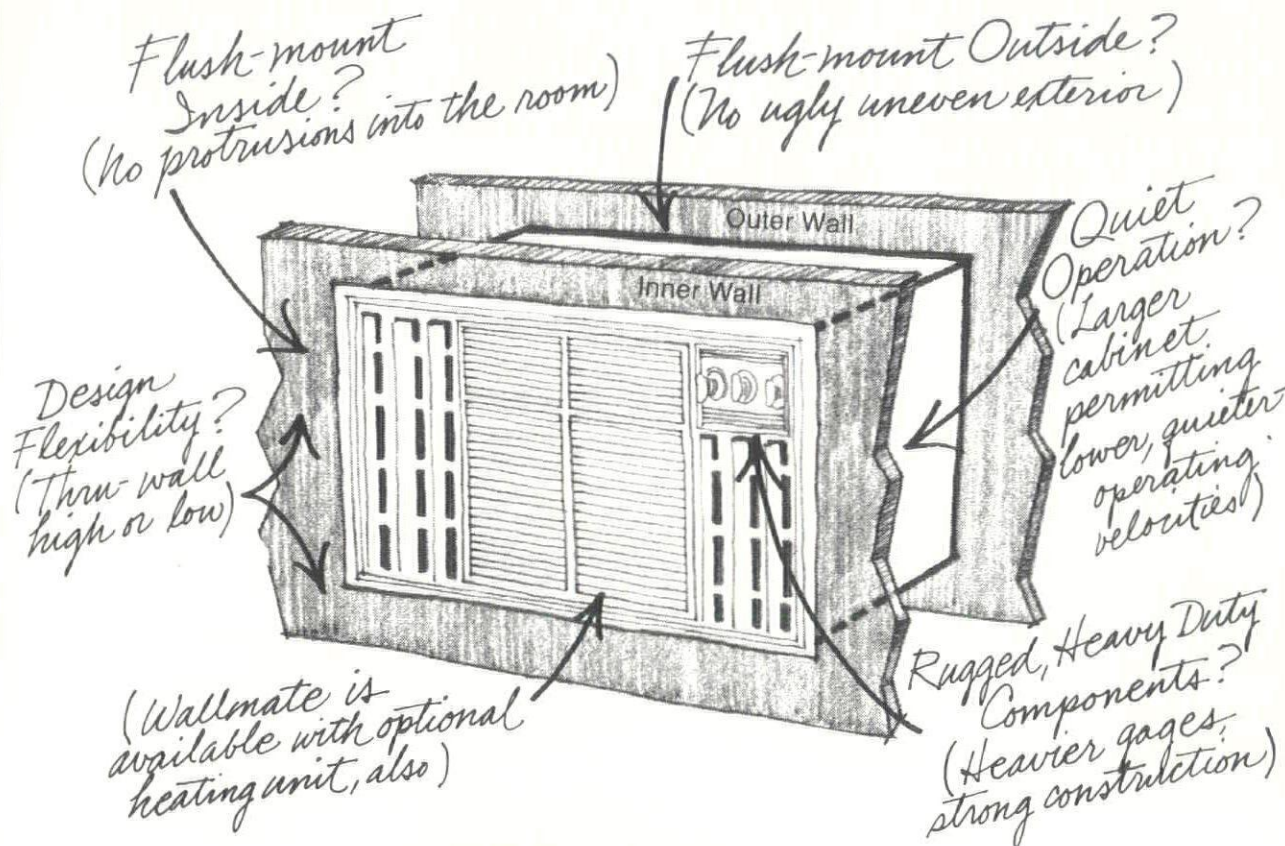 Flush-mount
Inside?
(no protrusions into the room)
Flush-mount Outside?
(No ugly uneven exterior)
Outer Wall
Inner Wall
Quiet
Operation?
(Larger
cabinet
permitting
lower, quieter
operating
velocities)
Design
Flexibility?
(Thru-wall
high or low)
(Wallmate is
available with optional
heating unit, also)
Rugged, Heavy Duty
Components?
(Heavier gages,
strong construction)